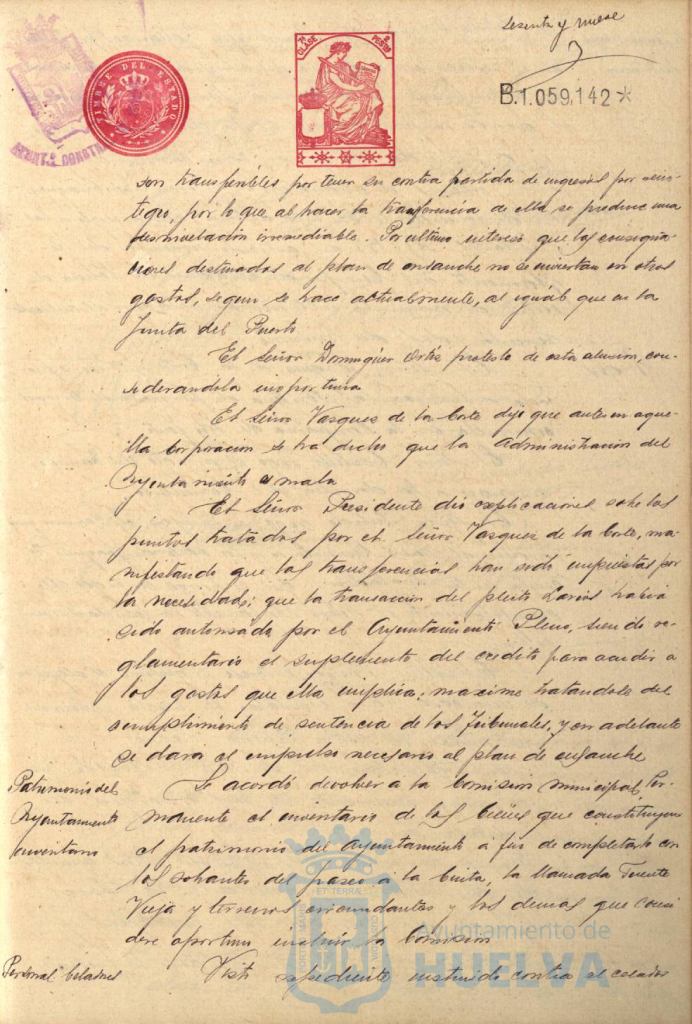 Sesenta y nueve
7ª CLASE PESETAS
TIMBRE DEL ESTADO
B.1.059.142 *
son transferibles por tener su contra partida de ingresos por rein-
tegro, por lo que al hacer la transferencia de ella se produce una
desnivelación irremediable. Por ultimo intereso que las consigna-
ciones destinadas al plan de ensanche no se inviertan en otros
gastos, segun se hace actualmente, al iguál que en la
Junta del Puerto
El Señor Dominguez Ortiz protesto de esta alusión, con-
siderandola inoportuna
El Señor Vasquez de la Corte dijo que antes en aque-
lla Corporación se ha dicho que la Administración del
Ayuntamiento es mala
El Señor Presidente dio explicaciones sobre los
puntos tratados por el Señor Vasquez de la Corte, ma-
nifestando que las transferencias han sido impuestas por
la necesidad; que la transacción del pleito Larios habia
sido autorizada por el Ayuntamiento Pleno, siendo re-
glamentario el suplemento del credito para acudir a
los gastos que ella implica; maxime tratandose del
cumplimiento de sentencia de los Tribunales, y en adelante
se dara el impulso necesario al plan de ensanche
Patrimonio del
Ayuntamiento
inventario
Se acordó devolver a la Comision Municipal Per-
manente el inventario de los bienes que constituyen
el patrimonio del Ayuntamiento á fin de completarlo con
los sobrantes del paseo á la Cinta, la llamada Fuente
Vieja y terrenos circundantes y los demas que consi-
dere oportuno incluir la Comision
Personal Celadores
Visto expediente instruido contra el celador
Ayuntamiento de
HUELVA